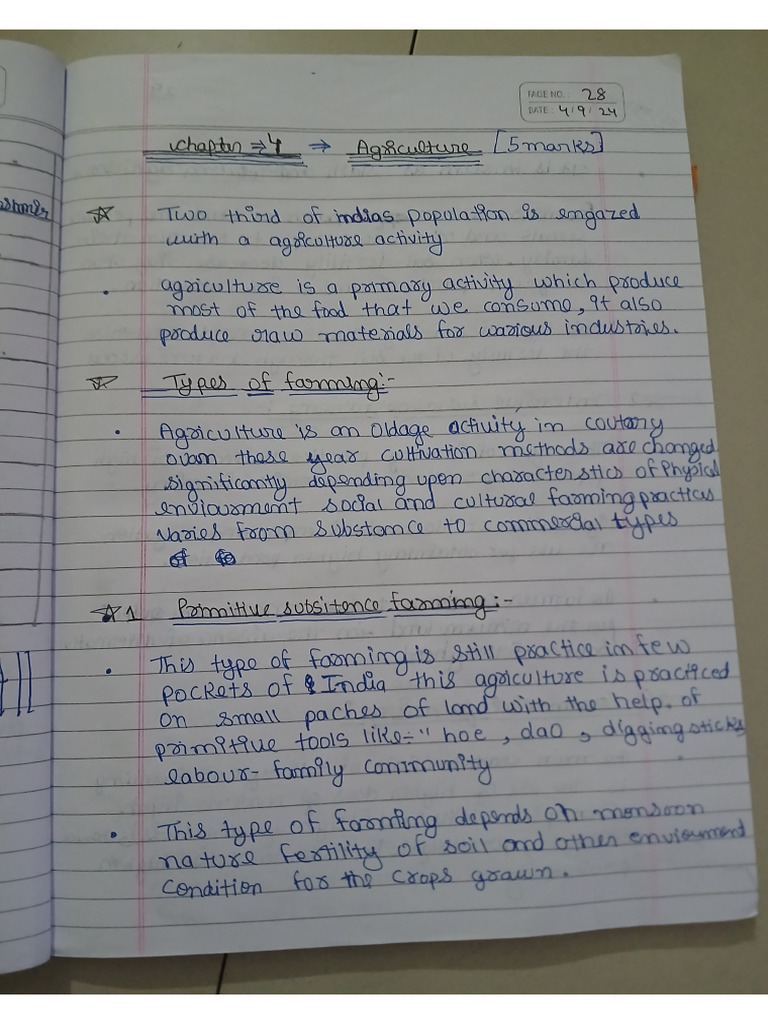 PAGE NO.: 28
DATE: 4/9/24
Chapter ⇒ 4 ⇒ Agriculture [5 marks]
☆ Two third of indias population is engazed
with a agriculture activity
• agriculture is a primary activity which produce
most of the food that we consume, It also
produce raw materials for various industries.
☆ Types of farming:-
• Agriculture is an oldage activity in coutary
ovam these year cultivation methods are changed
significantly depending upon characterstics of Physical
enviourment social and cultural farming practices
varies from substance to commercial types
of
☆1 Primitive subsitence farming:-
• This type of farming is still practice in few
pockets of India this agriculture is practiced
on small paches of land with the help. of
primitive tools like:- " hoe, dao, digging sticks
labour- family community
• This type of farming depends on monsoon
nature fertility of soil and other enviourment
condition for the crops grawn.